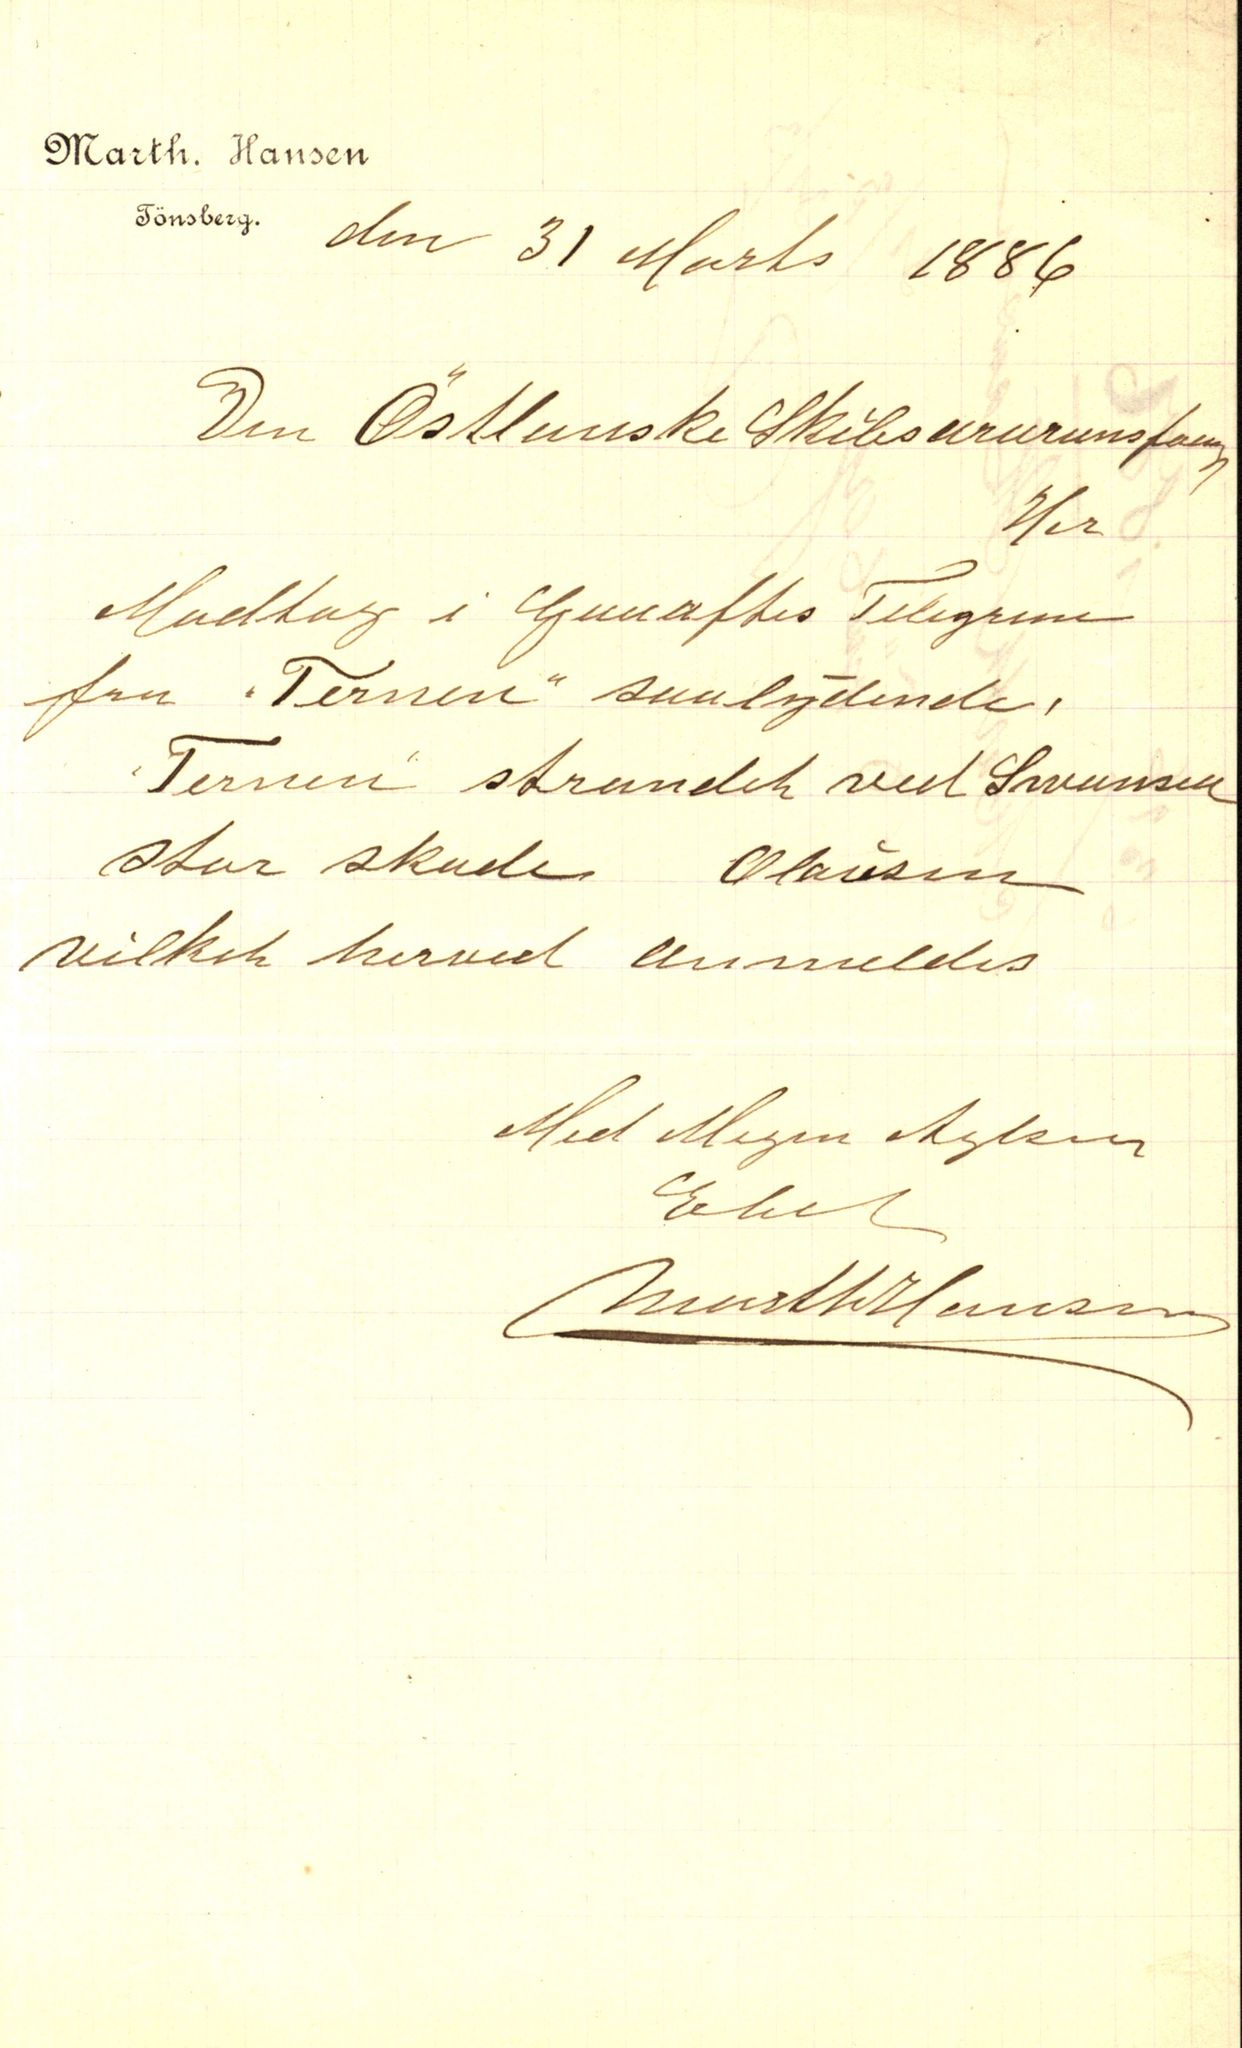 Marth. Hansen
Tönsberg.
den 31 Marts 1886
Den Östlanske Skibsasuransforng
Her
Modtog i Gaaraftes Telegram
fra "Ternen" saalydende,
"Ternen" strandet ved Swansea
stor skade Olaüsen
vilket herved anmeldes
Med Megen Agtsen
Ebst
MarthHansen